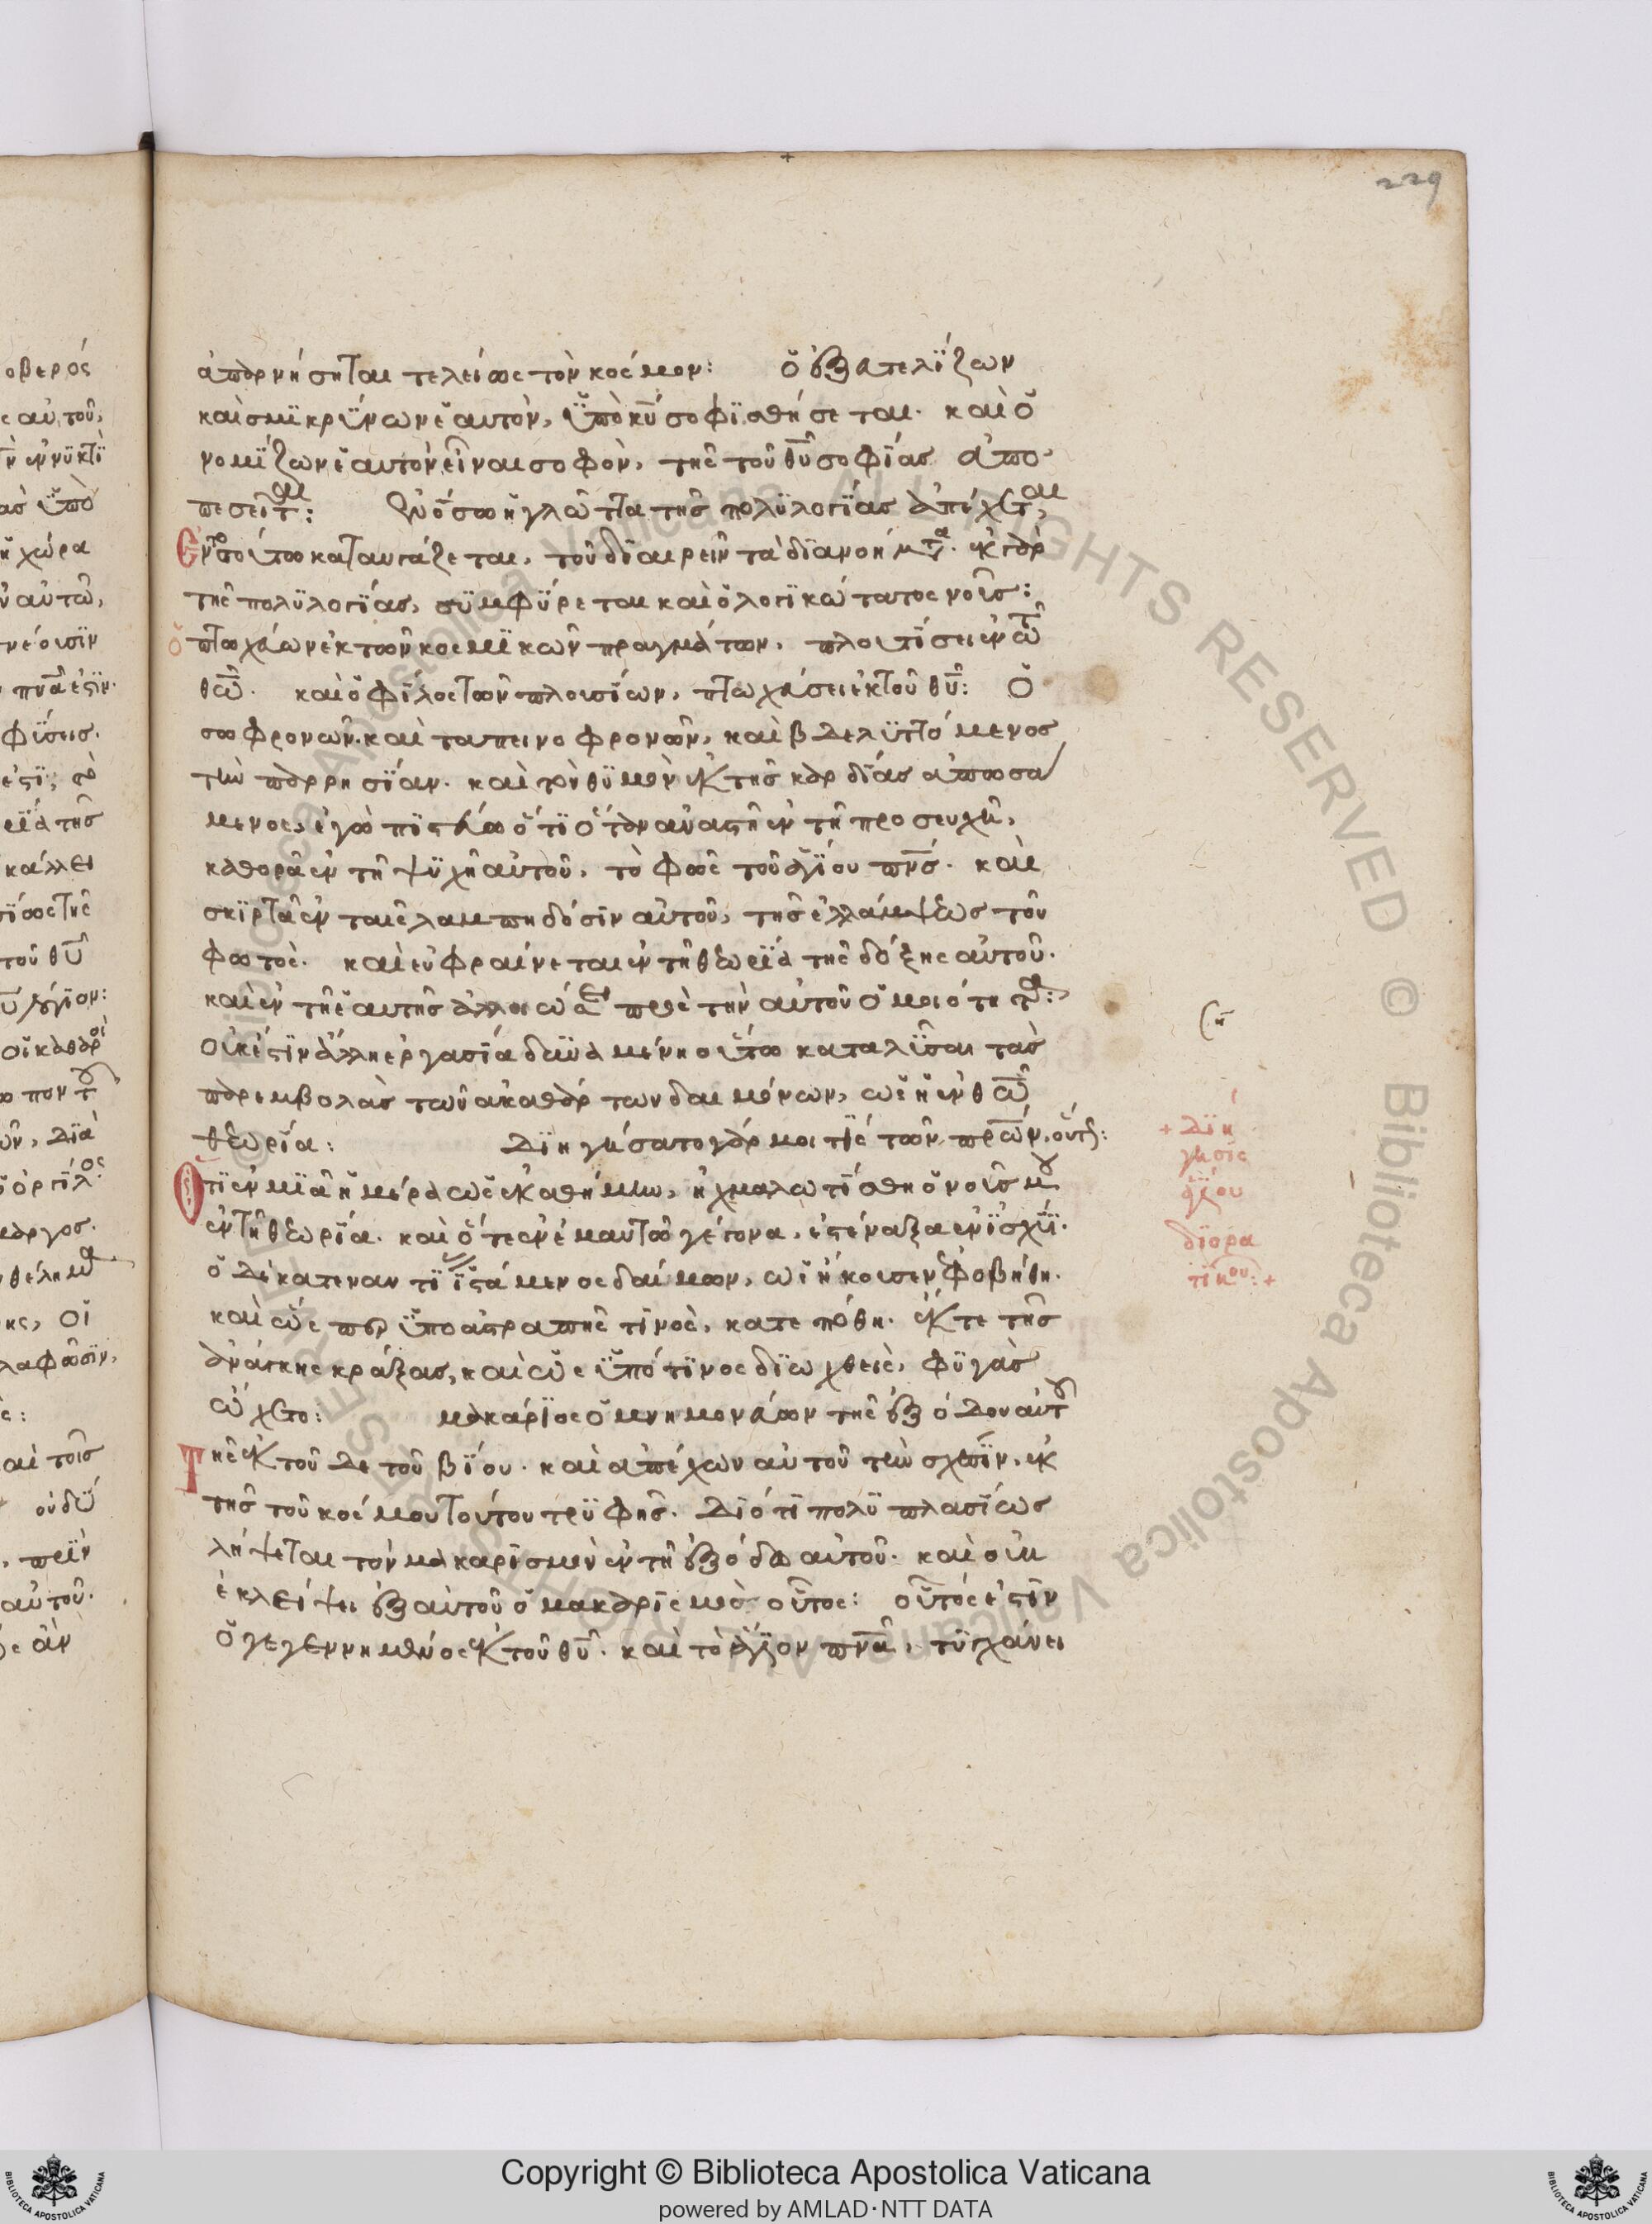 229
ἀπαρνήσηται τελείως τὸν κόσμον: ὁ ἐξατελίζων
καὶ σμικρύνων ἑαυτὸν, ὑπὸ κῡ σοφισθήσεται. καὶ ὁ
νομίζων ἑαυτὸν εἶναι σοφὸν, τῆς τοῦ θῡ σοφίας ἀπο
πεσεῖται: ὅσω ἡ γλῶττα τῆς πολυλογίας ἀπέχεται,
ἐν τοσούτω καταυγάζεται, τοῦ διαιρεῖν τὰ διανοήματα. ἐκ γὰρ
τῆς πολυλογίας, συμφύρεται καὶ ὁ λογικώτατος νοῦς:
ὁ πτωχεύων ἐκ τῶν κοσμικῶν πραγμάτων, πλουτίσει ἐν τῶ
θω. καὶ ὁ φίλος τῶν πλουσίων, πτωχεύσει ἐκ τοῦ θῡ: ὁ
σωφρονῶν. καὶ ταπεινοφρονῶν, καὶ βδελυττόμενος
τὴν παρρησίαν. καὶ τὸν θυμὸν ἐκ τῆς καρδίας ἀπωσά
μενος, ἐγὼ πιστεύω ὅτι ὅταν ἀναστῆ ἐν τῆ προσευχῆ,
καθορᾶ ἐν τῆ ψυχῆ αὐτοῦ, τὸ φῶς τοῦ ἁγίου πνς. καὶ
σκιρτᾶ ἐν ταῖς λαμπηδόσιν αὐτοῦ, τῆς ἐλλάμψεως τοῦ
φωτός. καὶ εὐφραίνεται ἐν τῆ θεωρία τῆς δόξης αὐτοῦ.
καὶ ἐν τῆ ἑαυτῆς ἀλλοιώσει πρὸς τὴν αὐτοῦ ὁμοιότητα:
οὐκ ἔστιν ἄλλη ἐργασία δυναμένη οὕτω καταλῦσαι τὰς
παρεμβολὰς τῶν ἀκαθάρτων δαιμόνων, ὡς ἡ ἐν θω
θεωρία: Διηγήσατο γάρ μοι τίς τῶν πρων, οὕτως:
Ὅτι ἐν μιᾶ ἡμέρα ὡς ἐκαθήμην, ἠχμαλωτίσθη ὁ νοῦς μου
ἐν τῆ θεωρία. καὶ ὅτε ἐν ἐμαυτῶ γέγονα, ἐστέναξα ἐν ἰσχύϊ.
ὁ δὲ κατεναντι ἱστάμενος δαίμων, ὡς ἤκουσεν ἐφοβήθη.
καὶ ὥσπερ ὑπὸ ἀστραπῆς τινὸς, κατεπόθη. ἐκ τε τῆς
ἀνάγκης κράξας, καὶ ὡς ὑπό τινος διωχθεὶς, φυγὰς
ὤχετο: μακάριος ὁ μνημονεύων τῆς ἐξόδου αὐτοῦ
Τῆς ἐκ τοῦδε τοῦ βίου. καὶ ἀπέχων αὐτοῦ τὴν σχέσιν, ἐκ
τῆς τοῦ κόσμου τούτου τρυφῆς. Διότι πολυπλασίως
λήψεται τὸν μακαρισμὸν ἐν τῆ ἐξόδω αὐτοῦ. καὶ οὐκ
ἐκλείψει ἐξ αὐτοῦ ὁ μακαρισμὸς οὗτος: οὗτός ἐστιν
ὁ γεγεννημένος ἐκ τοῦ θῡ. καὶ τὸ ἅγιον πνα, τυγχάνει
+ Διή
γησις
ἁγίου
διορα
τικοῦ: +
Copyright © Biblioteca Apostolica Vaticana
powered by AMLAD·NTT DATA